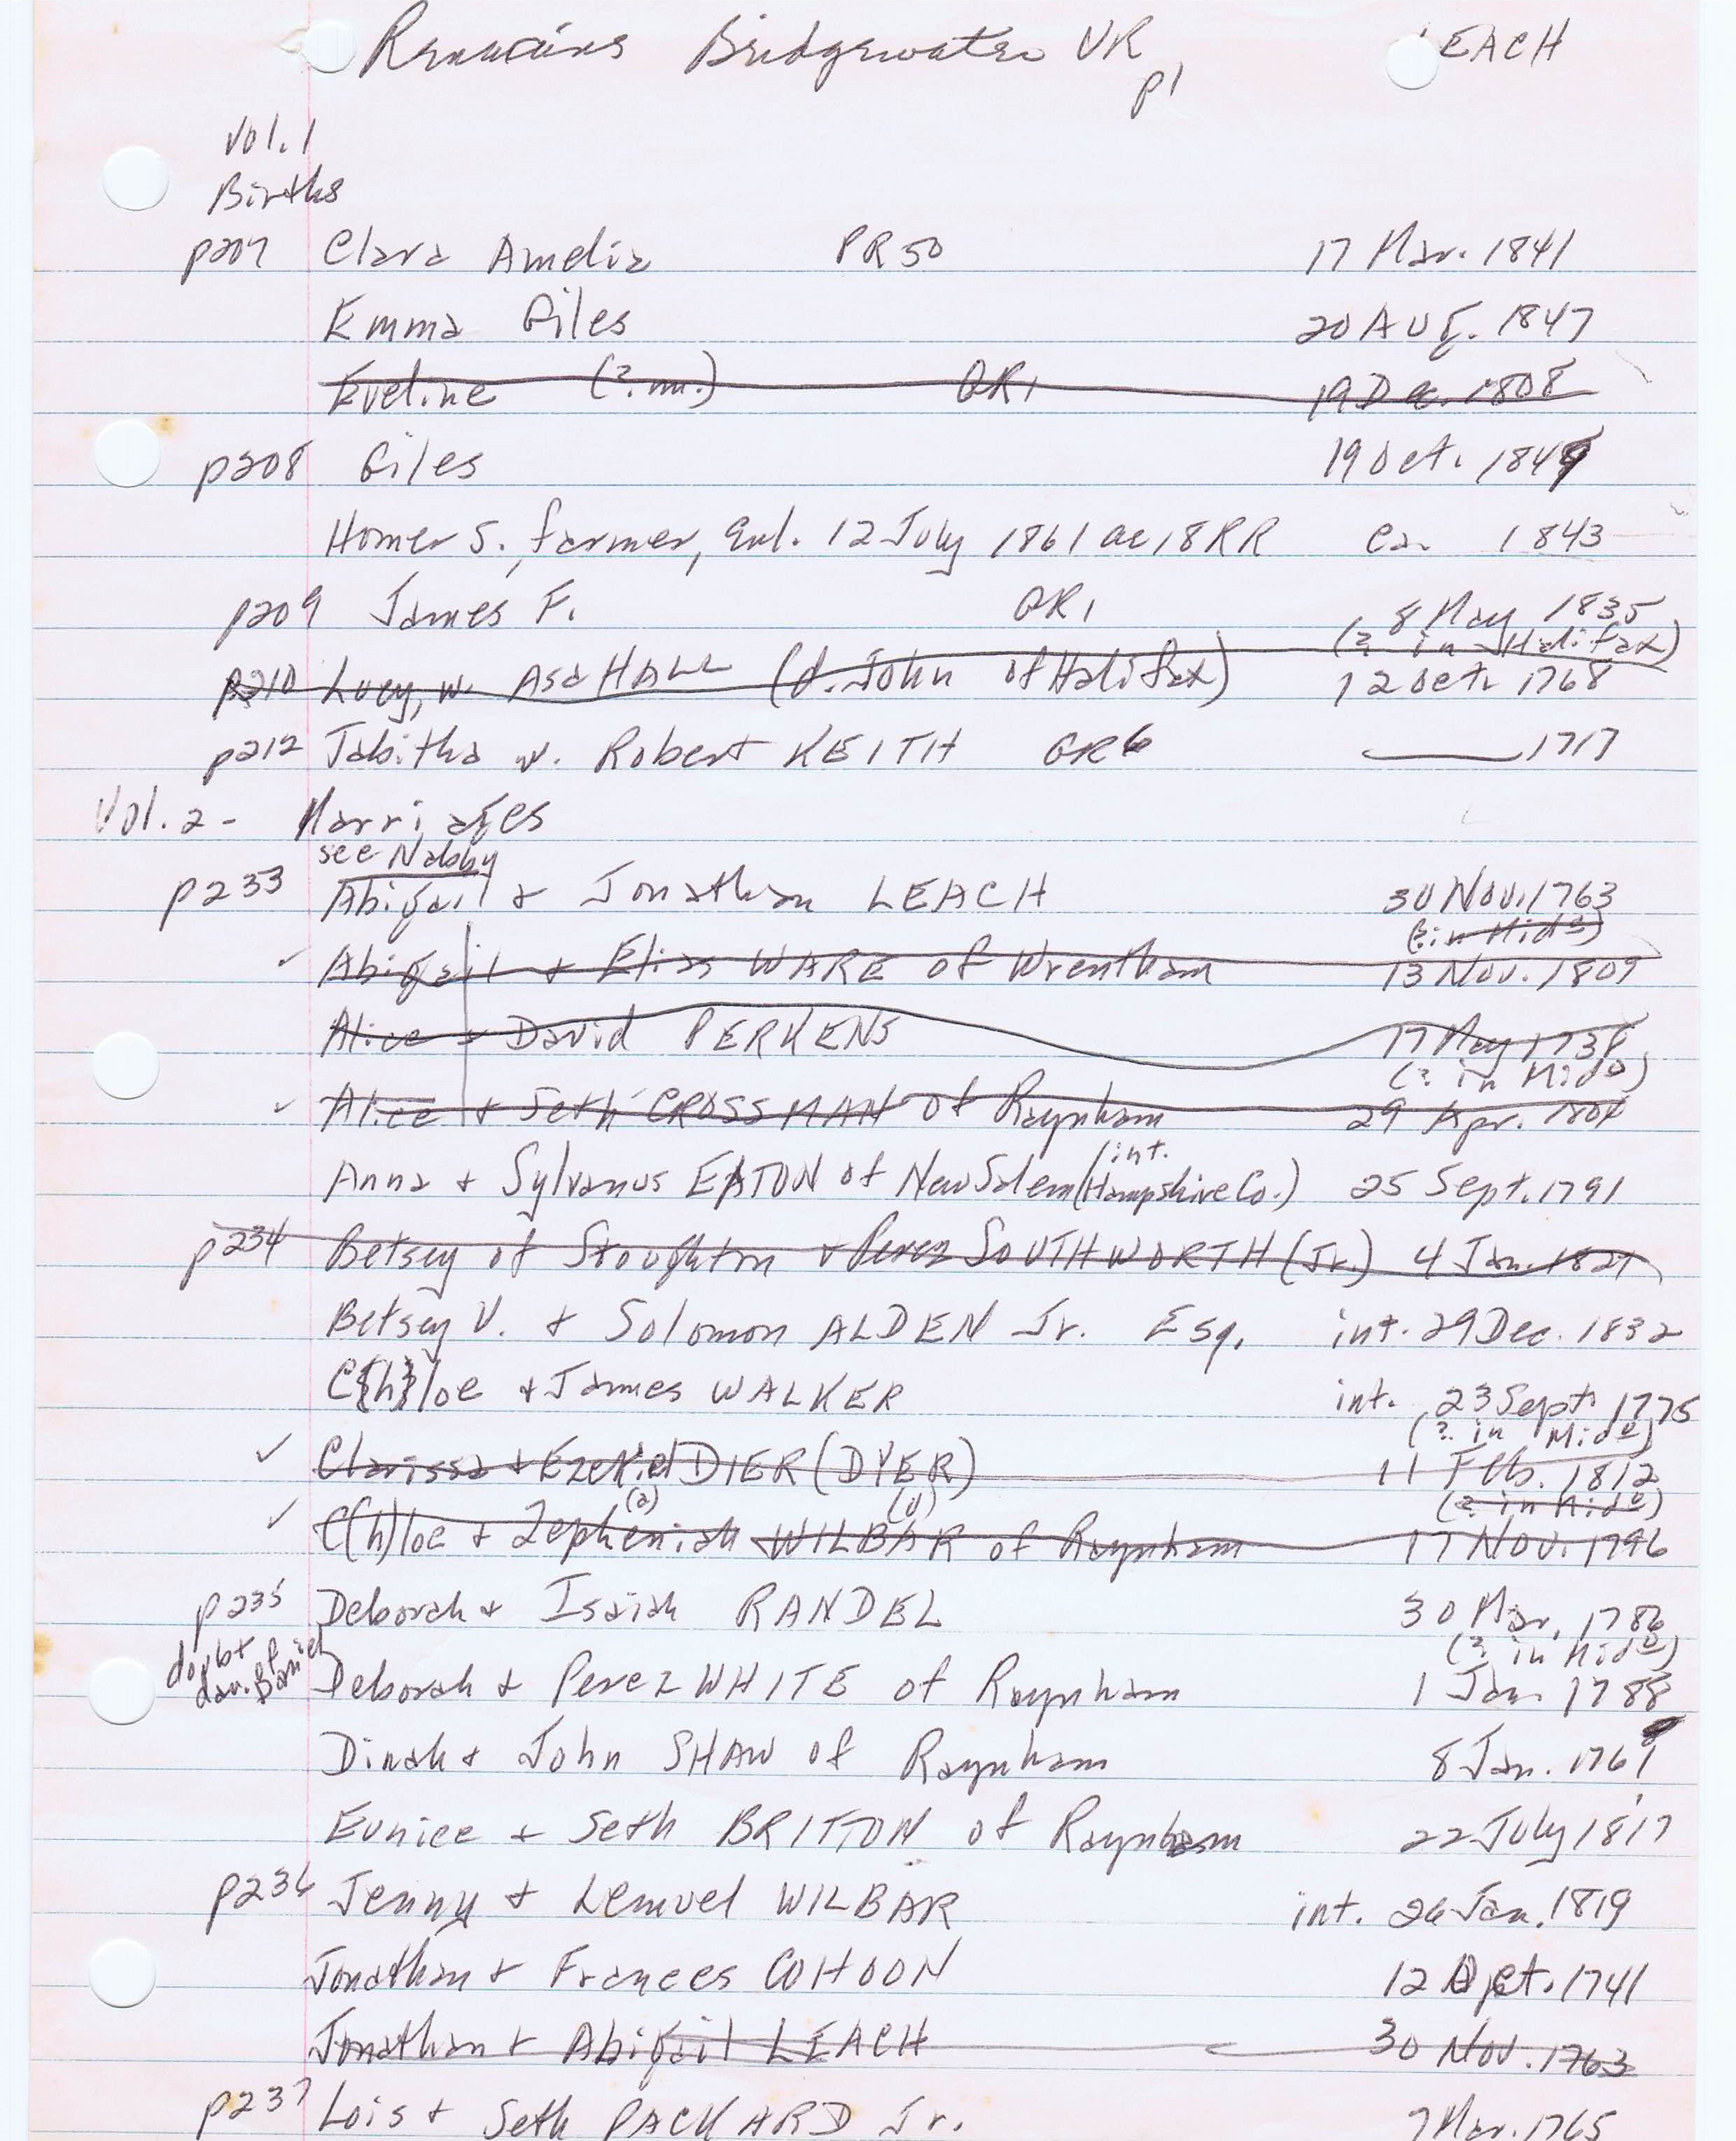 Remains Bridgewater VR LEACH
p1
Vol. 1
Births
p207 Clara Amelia PR50 17 Mar. 1841
Emma Giles 20 Aug. 1847
Eveline (?.nn.) GR1 19 Dec. 1808
p208 Giles 19 Oct. 1849
Homer S., farmer, enl. 12 July 1861 ae 18 RR ca. 1843
p209 James F. GR1 8 May 1835
(? in Halifax)
p210 Lucy, w. Asa HALL (d. John of Halifax) 12 Oct. 1768
p212 Tabitha w. Robert KEITH GR6 1717
Vol. 2 - Marriages
see Nabby
p233 Abigail & Jonathan LEACH 30 Nov. 1763
(? in Midº)
Abigail & Elias WARE of Wrentham 13 Nov. 1809
Alice & David PERKENS 17 May 1738
(? in Midº)
Alice & Seth CROSSMAN of Raynham 29 Apr. 1804
int.
Anna & Sylvanus EATON of New Salem (Hampshire Co.) 25 Sept. 1791
p234 Betsey of Stoughton & Perez SOUTHWORTH (Jr.) 4 Jan. 1821
Betsey V. & Solomon ALDEN Jr. Esq. int. 29 Dec. 1832
C{h}loe & James WALKER int. 23 Sept. 1775
(? in Midº)
Clarissa & Ezekiel DIER (DYER) 11 Feb. 1812
(a) (u) (? in Midº)
C(h)loe & Zepheniah WILBAR of Raynham 17 Nov. 1796
p235 Deborah & Isaiah RANDEL 30 Mar. 1786
doubt (? in Midº)
dau. of Daniel Deborah & Perez WHITE of Raynham 1 Jan. 1788
Dinah & John SHAW of Raynham 8 Jan. 1761
Eunice & Seth BRITTON of Raynham 22 July 1817
p236 Jenny & Lemuel WILBAR int. 26 Jan. 1819
Jonathan & Frances COHOON 12 Oct. 1741
Jonathan & Abigail LEACH 30 Nov. 1763
p237 Lois & Seth PACKARD Jr. 7 Mar. 1765